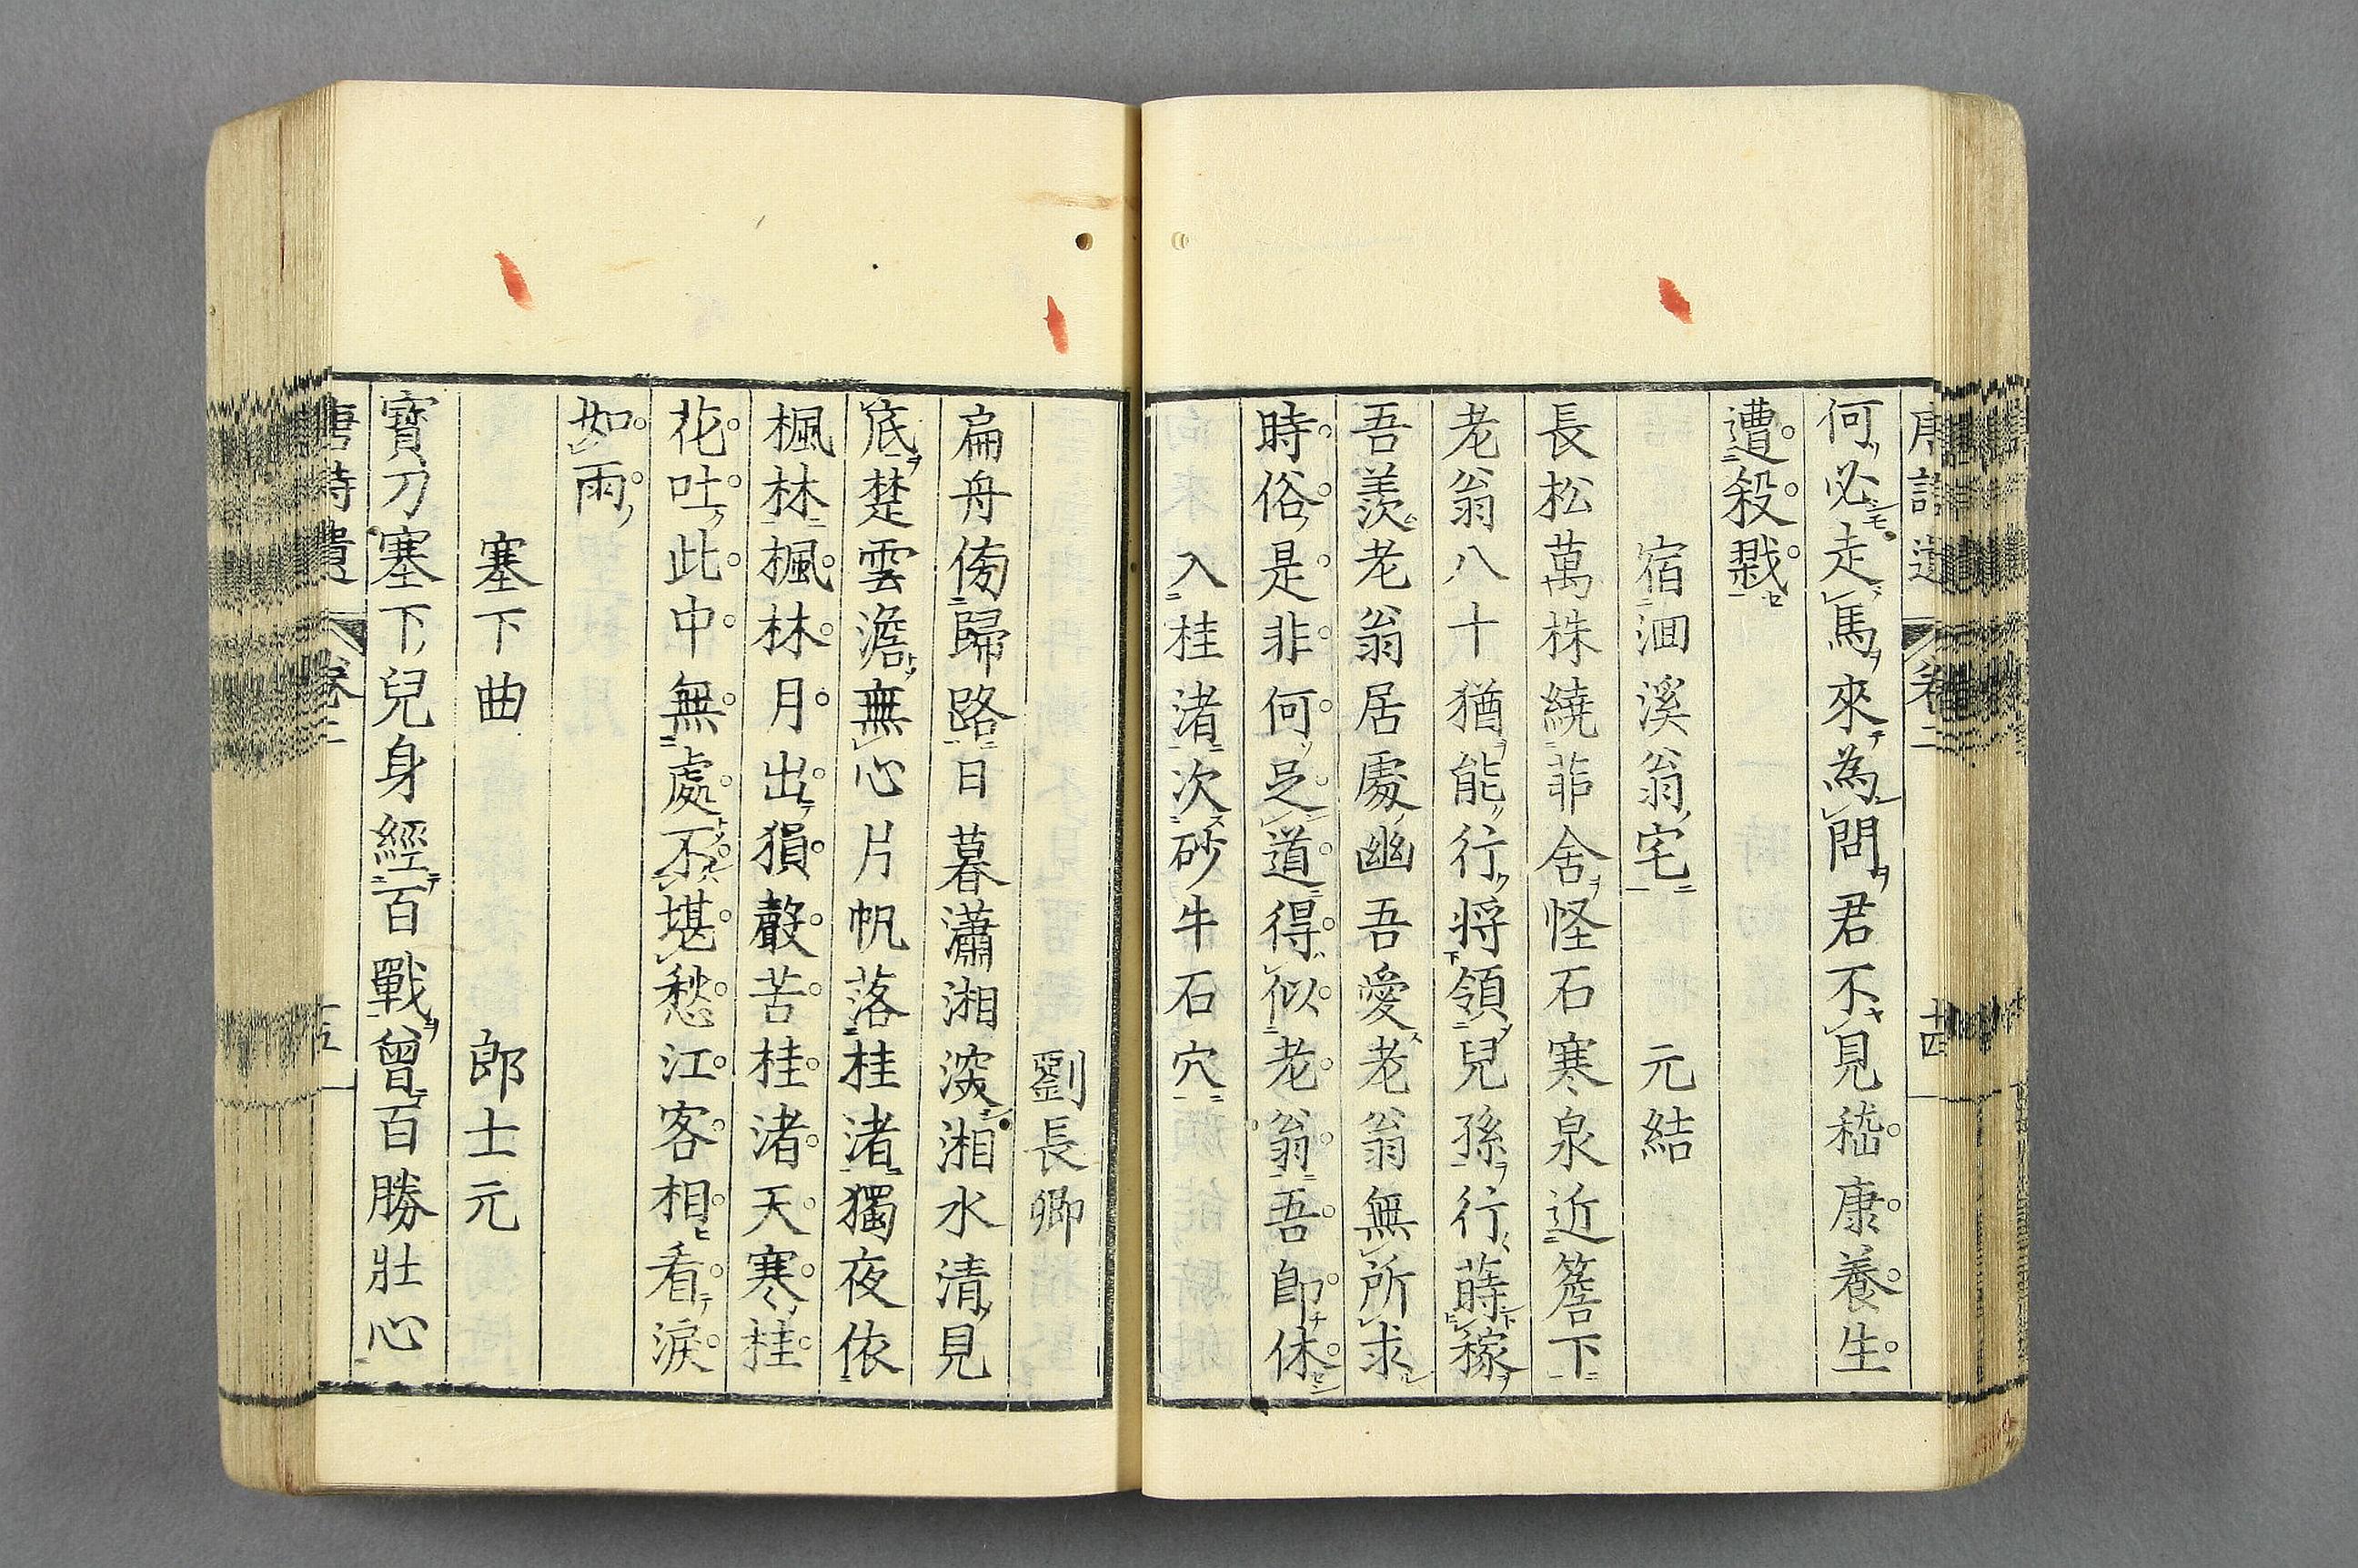 何必走馬來為問君不見嵇康養生
遭殺戮
宿洄溪翁宅　元結
長松萬株繞茆舍怪石寒泉近簷下
老翁八十猶能行将領兒孫行蒔稼
吾羨老翁居處幽吾愛老翁無所求
時俗是非何足道得似老翁吾即休
入桂渚次砂牛石穴
劉長卿
扁舟傍歸路日暮瀟湘深湘水清見
底楚雲澹無心片帆落桂渚獨夜依
楓林楓林月出猿聲苦桂渚天寒桂
花吐此中無處不堪愁江客相看淚
如雨
塞下曲　郎士元
寶刀塞下兒身經百戰曾百勝壯心
唐詩遺　卷二